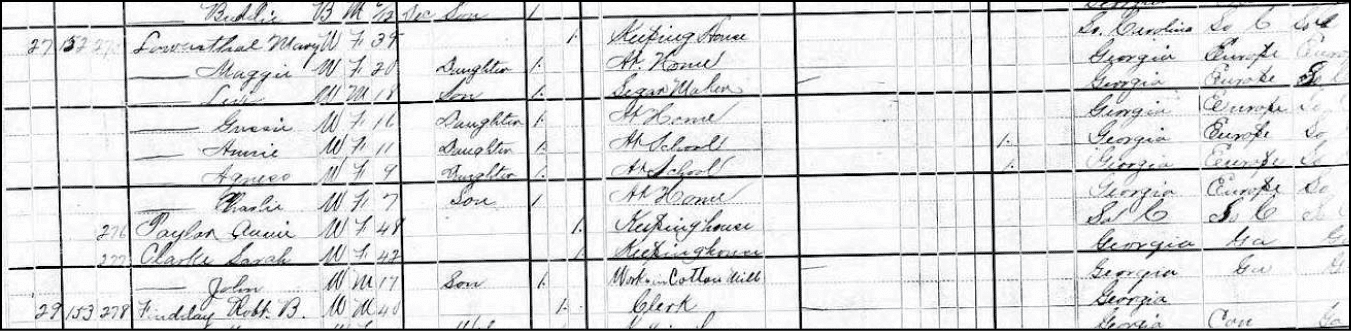 Buddie B M /12 Dec Son 1 Georgia
27 152 Lowenthal Mary W F 39 1 Keeping House So. Carolina So C So C
Maggie W F 20 Daughter 1 At Home Georgia Europe
W M 18 Son 1 Segar Maker Georgia Europe So
Gussie W F 16 Daughter 1 At Home Georgia Europe So
Annie W F 11 Daughter 1 At School 1 Georgia Europe So
Agness W F 9 Daughter 1 At School 1 Georgia Europe So
Charlie W F 7 Son 1 At Home Georgia Europe So
276 Taylor Annie W F 48 1 Keeping house So C So C
277 Clarke Sarah W F 42 1 Keeping house Georgia Ga
John W M 17 Son 1 Work in Cotton Mill Georgia Ga
29 153 278 Findlay Robt. B. W M 40 1 Clerk Georgia
Georgia Ga